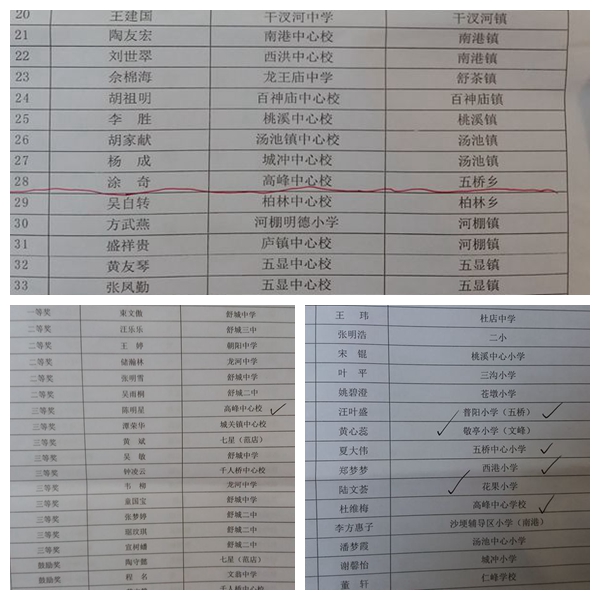 20 王建国 干汊河中学 干汊河镇
21 陶友宏 南港中心校 南港镇
22 刘世翠 西洪中心校 南港镇
23 佘棉海 龙王庙中学 舒茶镇
24 胡祖明 百神庙中心校 百神庙镇
25 李 胜 桃溪中心校 桃溪镇
26 胡家献 汤池镇中心校 汤池镇
27 杨 成 城冲中心校 汤池镇
28 涂 奇 高峰中心校 五桥乡
29 吴自转 柏林中心校 柏林乡
30 方武燕 河棚明德小学 河棚镇
31 盛祥贵 庐镇中心校 河棚镇
32 黄友琴 五显中心校 五显镇
33 张凤勤 五显中心校 五显镇
一等奖 束文傲 舒城中学
二等奖 汪乐乐 舒城三中
二等奖 王 婷 朝阳中学
二等奖 储瀚林 龙河中学
二等奖 张明雪 舒城中学
二等奖 吴雨桐 舒城二中
三等奖 陈明星 高峰中心校
三等奖 谭荣华 城关镇中心校
三等奖 黄 斌 七星（范店）
三等奖 吴 敏 舒城中学
三等奖 钟凌云 千人桥中心校
三等奖 韦 柳 龙河中学
三等奖 童国宝 舒城中学
三等奖 张梦婷 舒城二中
三等奖 舒城二中
三等奖 宣树蟠 舒城二中
鼓励奖 陶守懿 七星（范店）
鼓励奖 程 名 文翁中学
千人桥中心校
王 玮 杜店中学
张明浩 二小
宋 锟 桃溪中心小学
叶 平 三沟小学
姚碧澄 苍墩小学
汪叶盛 普阳小学（五桥）
黄心蕊 敬亭小学（文峰）
夏大伟 五桥中心小学
郑梦梦 西港小学
陆文荟 花果小学
杜维梅 高峰中心学校
李方惠子 沙埂辅导区小学（南港）
潘梦霞 汤池中心小学
谢馨怡 城冲小学
董 轩 仁峰学校